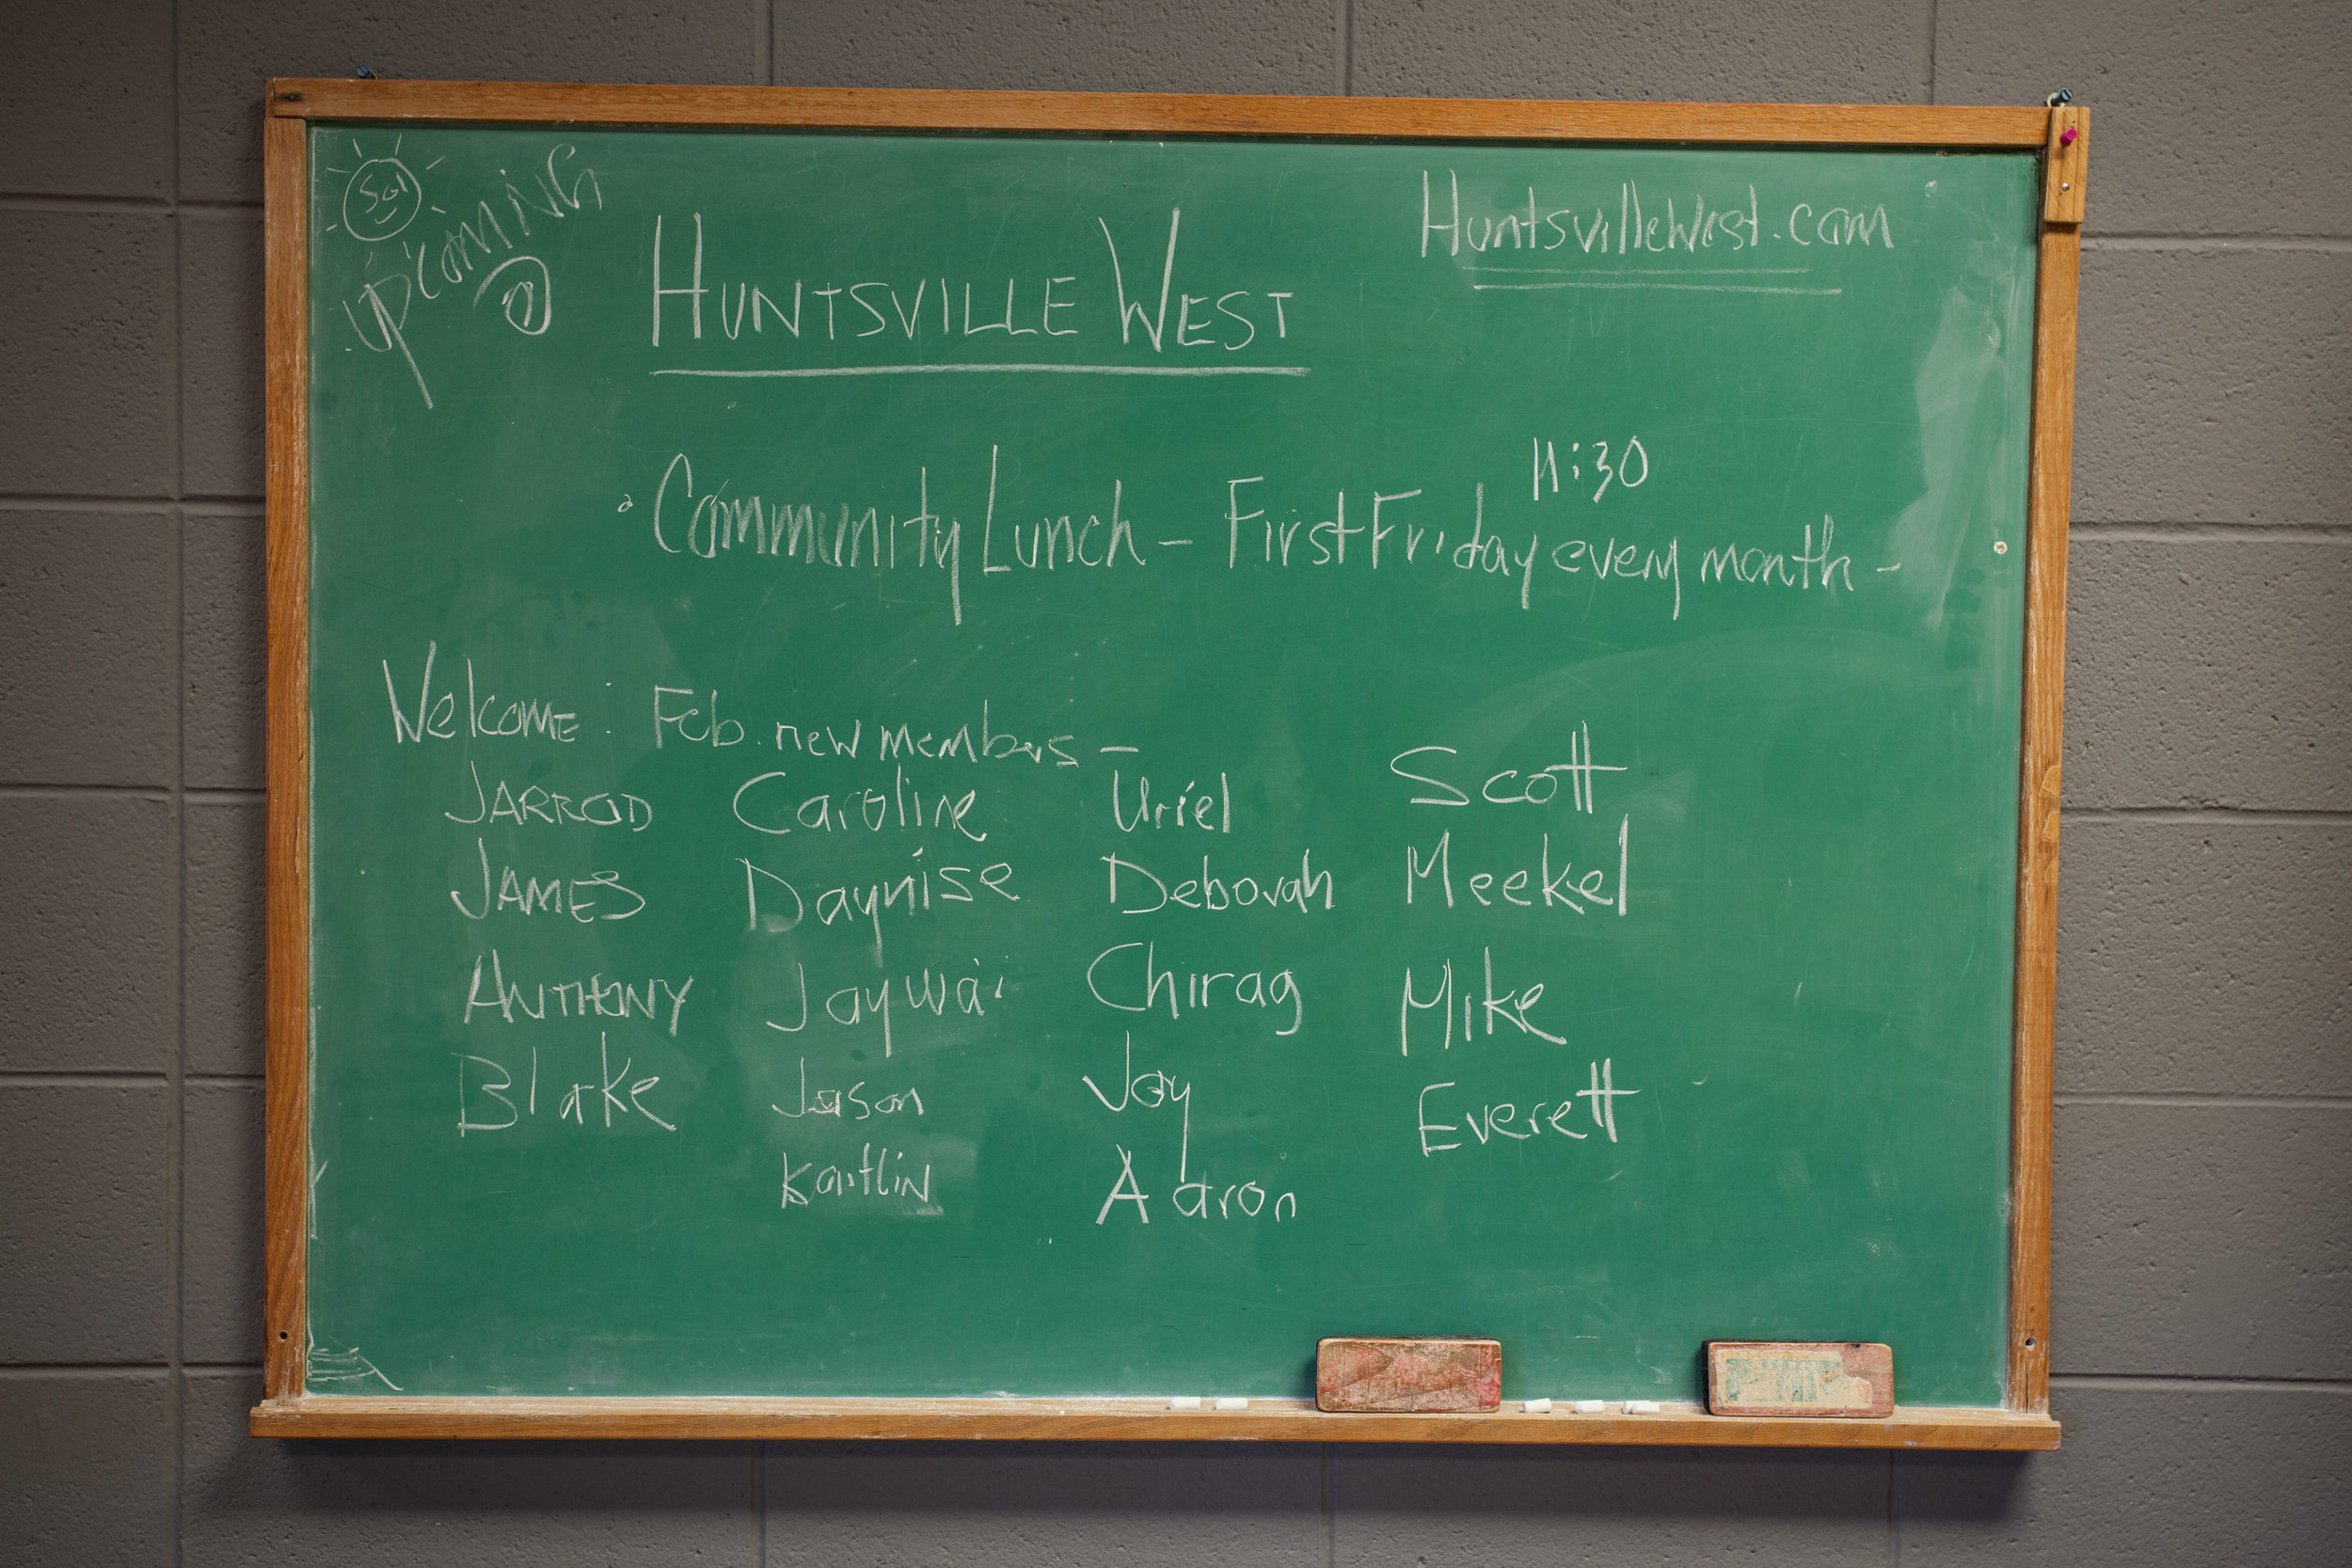 upcoming @
HuntsvilleWest.com
HUNTSVILLE WEST
11:30
• Community Lunch - First Friday every month -
Welcome: Feb. new members -
JARROD Caroline Uriel Scott
JAMES Daynise Deborah Meekel
ANTHONY Jaywai Chirag Mike
Blake Jason Joy Everett
Kaitlin Aaron